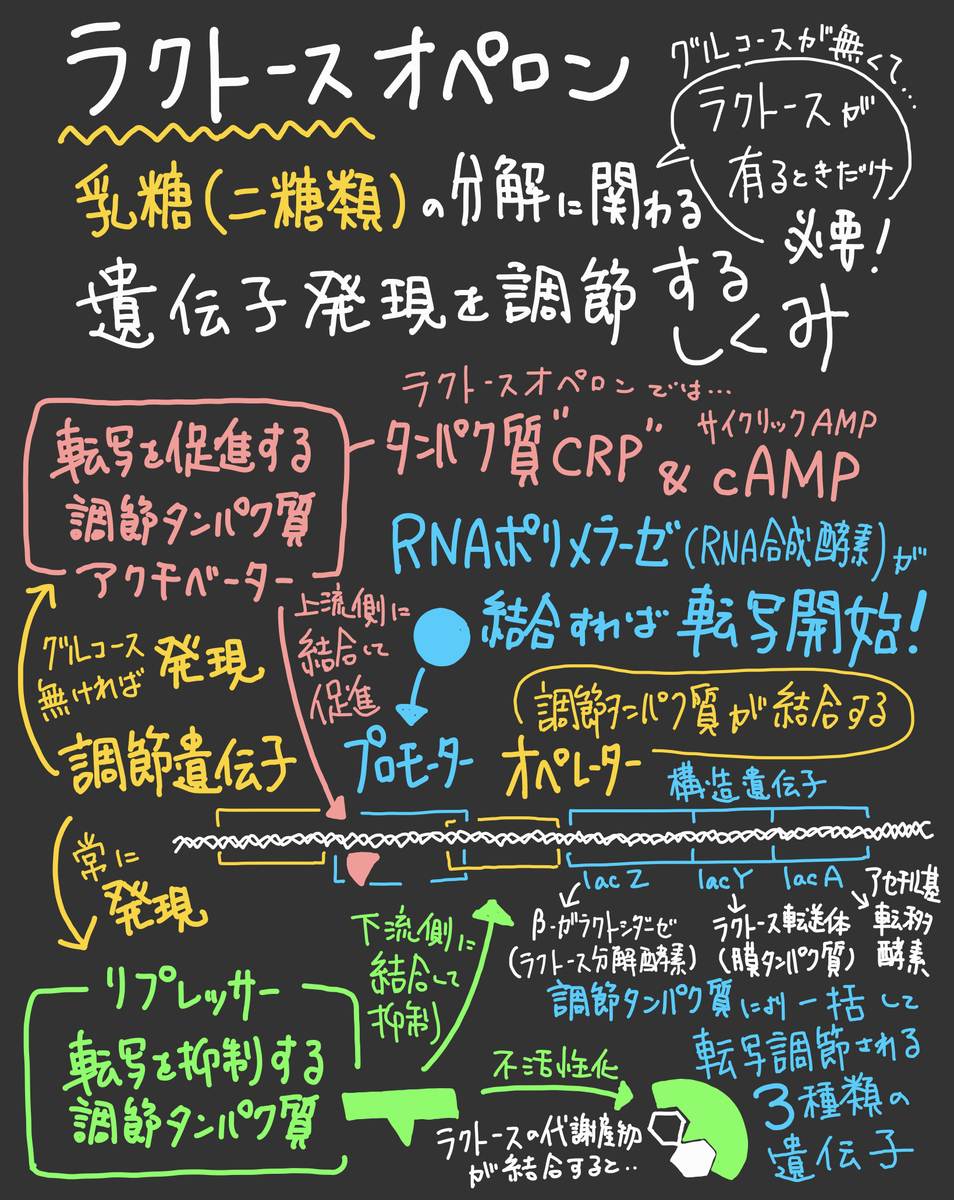 ラクトースオペロン
グルコースが無くて…
ラクトースが
有るときだけ
必要!
乳糖(二糖類)の分解に関わる
遺伝子発現を調節する
しくみ
ラクトースオペロンでは…
転写を促進する
調節タンパク質
アクチベーター
タンパク質"CRP" & cAMP
サイクリックAMP
RNAポリメラーゼ(RNA合成酵素)が
結合すれば転写開始!
上流側に
結合して
促進
グルコース
無ければ
発現
調節遺伝子
プロモーター
調節タンパク質が結合する
オペレーター
構造遺伝子
常に
発現
lacZ
lacY
lacA
β-ガラクトシダーゼ
(ラクトース分解酵素)
ラクトース転送体
(膜タンパク質)
アセチル基
転移
酵素
下流側に
結合して
抑制
リプレッサー
転写を抑制する
調節タンパク質
調節タンパク質により一括して
転写調節される
3種類の
遺伝子
不活性化
ラクトースの代謝産物
が結合すると‥